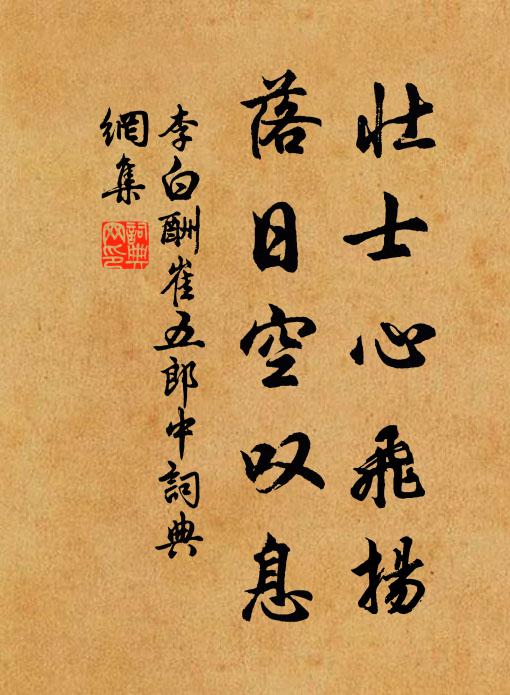 壮士心飛揚
落日空叹息
李白酬崔五郎中詞典
網集
詞典
网印